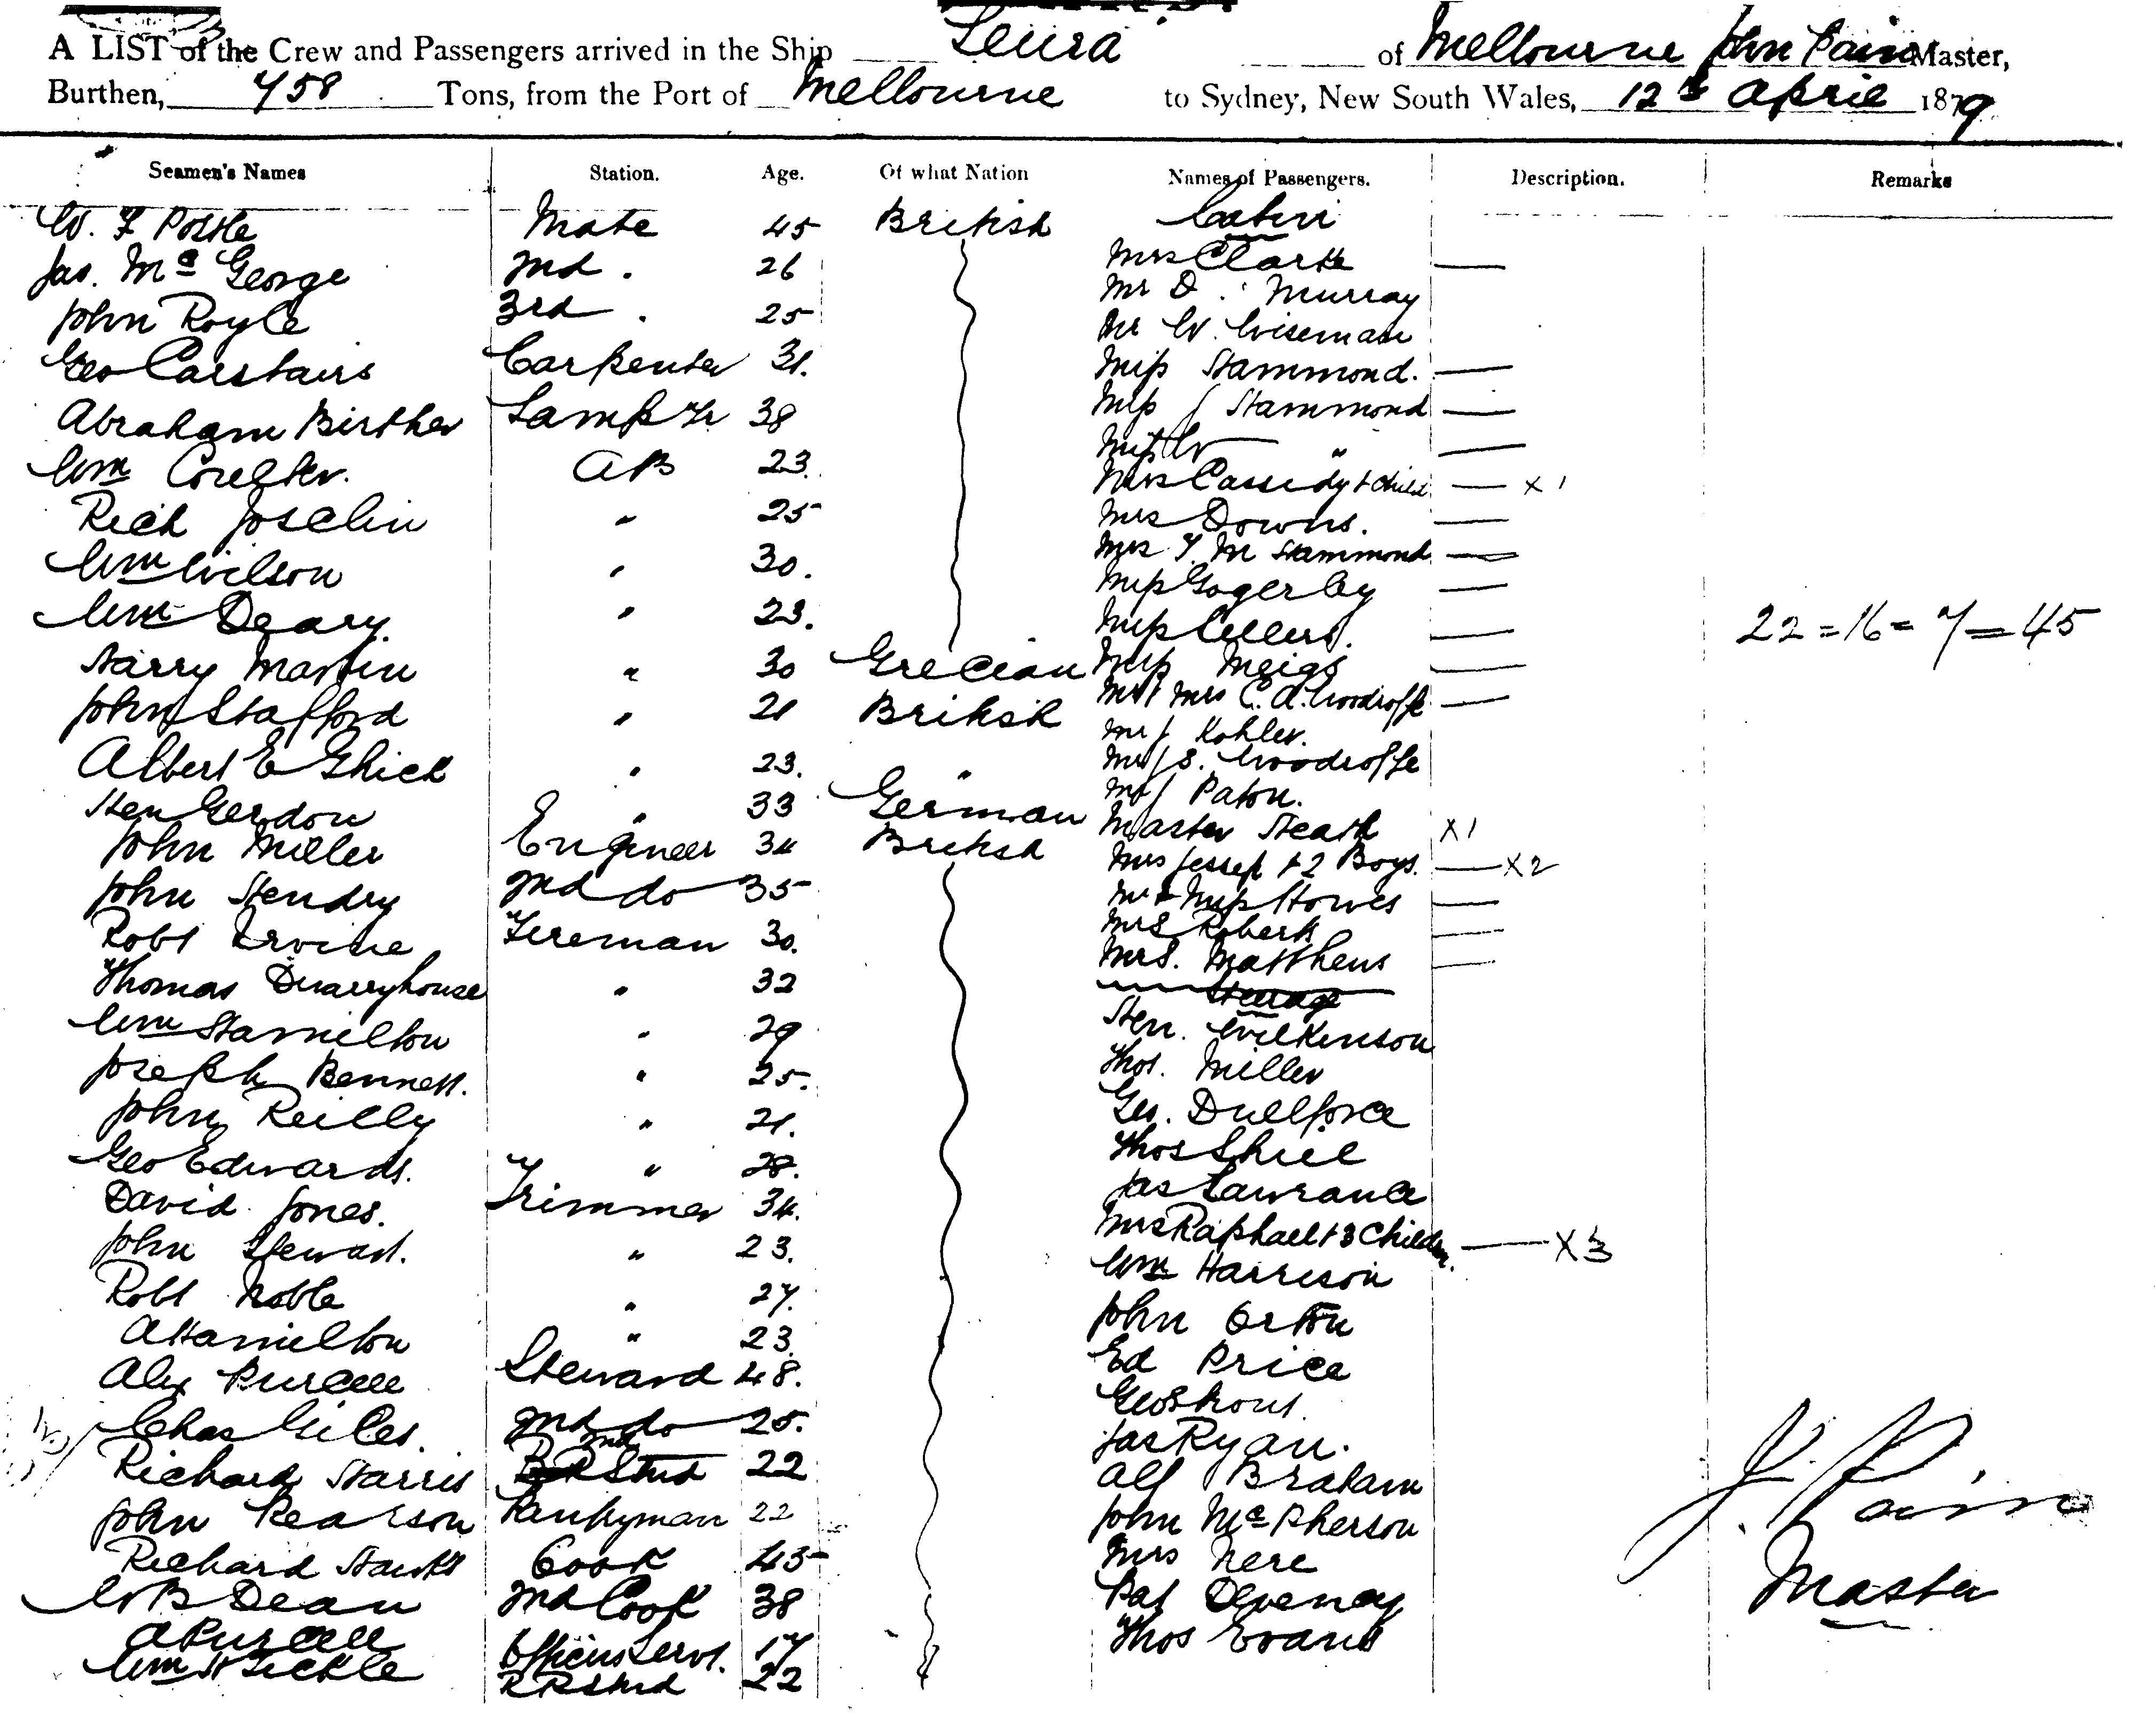 A LIST of the Crew and Passengers arrived in the Ship Leura of Melbourne John Pain Master,
Burthen, 458 Tons, from the Port of Melbourne to Sydney, New South Wales, 12th April 1879
Seamen's Names Station. Age. Of what Nation Names of Passengers. Description. Remarks
W. F Postle Mate 45 British Cabin
Jas. Mc George 2nd . 26 Mrs Clarke —
John Royle 3rd . 25 Mr D. Murray
Mr W. Wiseman
Geo Carstairs Carpenter 31. Miss Hammond. —
Abraham Birther Lamp Tr 38 Miss J Hammond —
Miss W " —
Wm Coulter. AB 23. Mrs Cassidy & child — x 1
Rich Joselin " 25 Mrs Downs. —
Wm Wilson " 30. Mrs T. M Hammond —
Miss Gogerby —
Wm Deary. " 23. Miss Cellers. — 22 = 16 = 7 = 45
Harry Martin " 30 Grecian Miss Meigs —
John Stafford " 21 British Mr & Mrs C. A. Woodroffe —
Mr J Kohler.
Albert E Ghick " 23. " Mr S. Woodroffe
Hen Gerdon " 33 German Mr J Paton.
John Miller Engineer 34 British Master Heath x 1
Mrs Jessep & 2 Boys. — x 2
John Hendry 2nd do 35 Mr & Miss Howes —
Robt Irvine Fireman 30. Mrs Roberts —
Mrs. Matthews —
Thomas Quarryhouse " 32 Steerage
Wm Hamilton " 29 Hen. Wilkinson
Joseph Bennett. " 25. Thos. Miller
John Reilly " 21. Geo. Dullforce
Geo Edwards. " 28. Thos Shiel
David Jones. Trimmer 34. Jas Lawrance
John Stewart. " 23. Mrs Raphael & 3 Children. — x 3
Robt Noble " 27. Wm Harrison
A Hamilton " 23. John Orton
Alex Purcell Steward 48. Ed Price
Chas Giles. 2nd do 25. Geo Strout.
Jas Ryan.
Richard Harris 2nd Stwd 22 Alf Braham
John Pearson Pantryman 22 John Mc Pherson
Richard Hawks Cook 45 Mrs Nere
W B Dean 2nd Cook 38 Pat
A Purcell Officers Servt. 17 Thos Evans
Wm H Sickle Stwd 22
J. Pain
Master